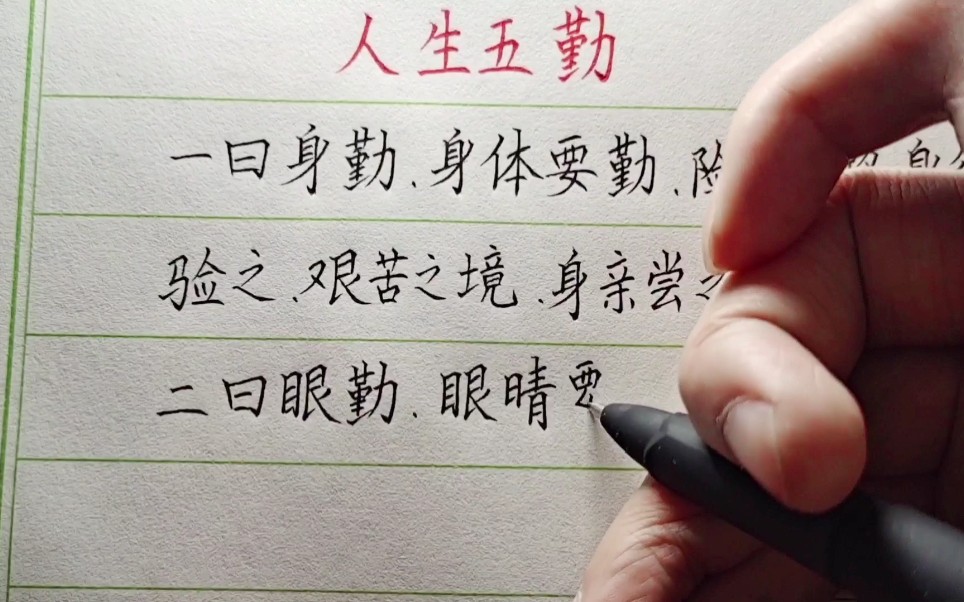 人生五勤
一曰身勤、身体要勤、险
验之、艰苦之境、身亲尝之
二曰眼勤、眼睛要